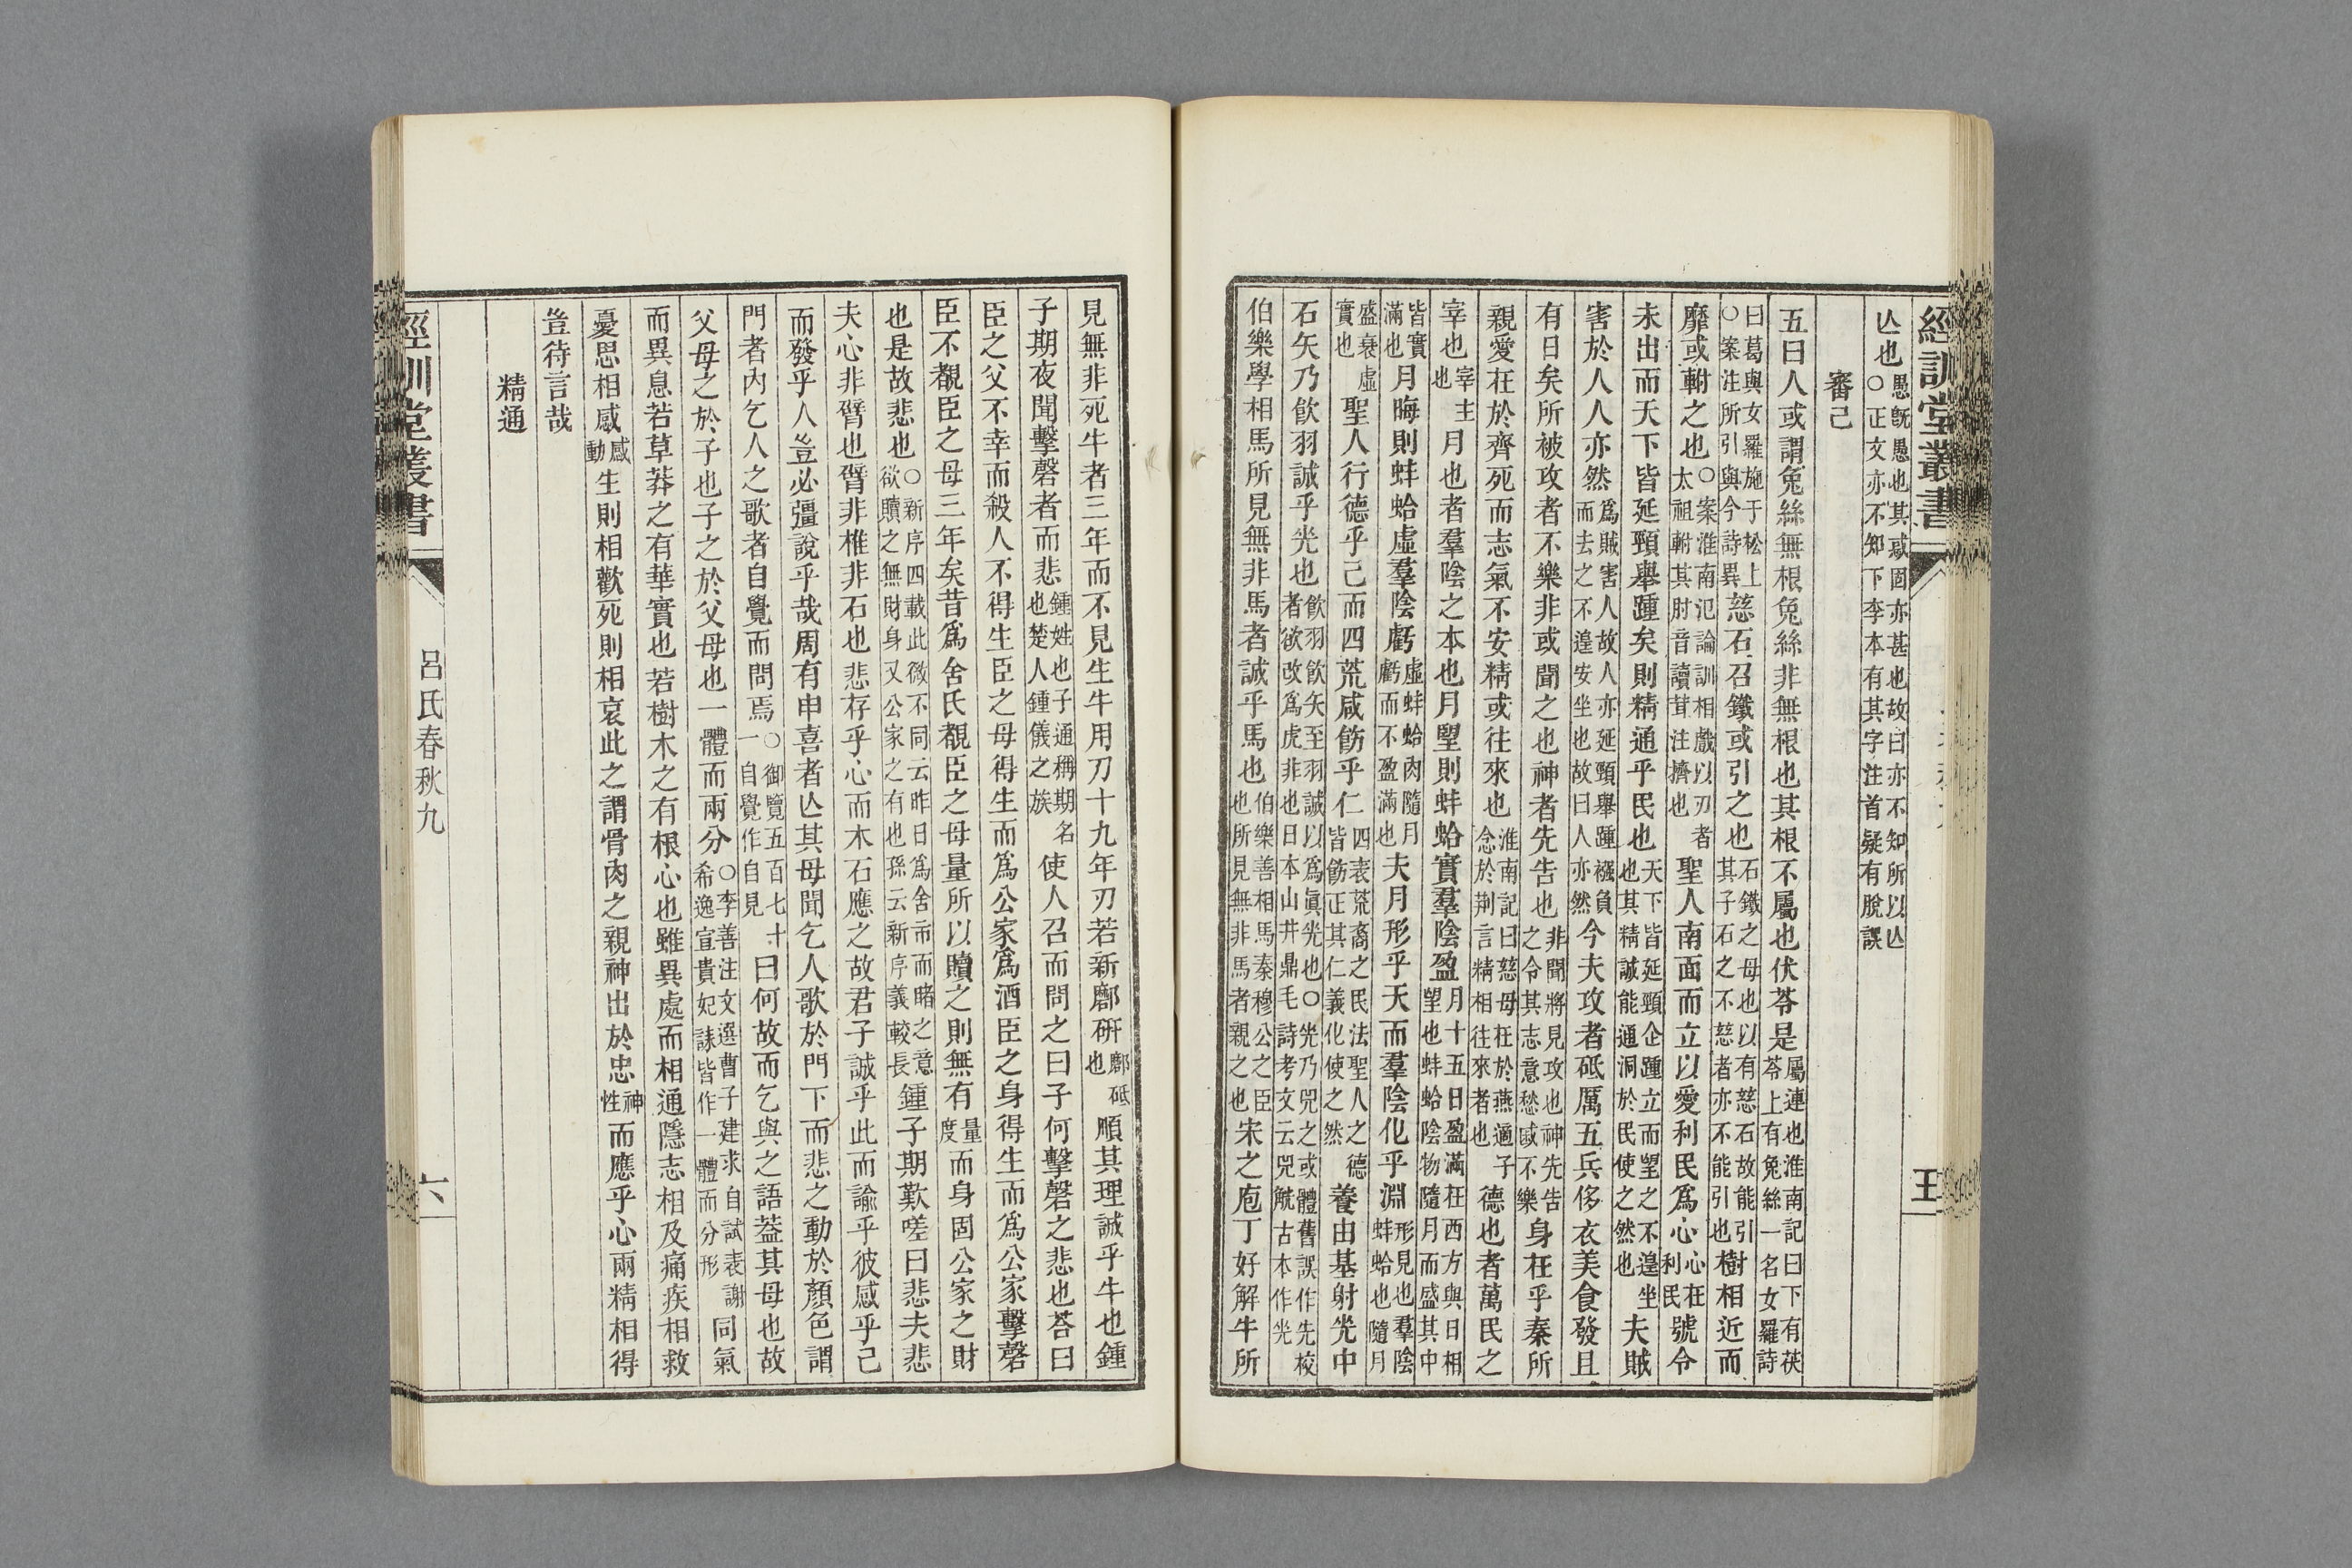 經訓堂叢書
五
亾也愚旣愚也其惑固亦甚也故曰亦不知所以亾○正文亦不知下李本有其字注首疑有脫誤
審己
五曰人或謂兔絲無根兔絲非無根也其根不屬也伏苓是屬連也淮南記曰下有茯苓上有兔絲一名女羅詩
曰葛與女羅施于松上○案注所引與今詩異慈石召鐵或引之也石鐵之母也以有慈石故能引其子石之不慈者亦不能引也樹相近而
靡或軵之也○案淮南氾論訓相戲以刃者太祖軵其肘音讀茸注擠也聖人南面而立以愛利民爲心心在利民號令
未出而天下皆延頸舉踵矣則精通乎民也天下皆延頸企踵立而望之不遑坐也其精誠能通洞於民使之然也夫賊
害於人人亦然爲賊害人故人亦延頸舉踵襁負而去之不遑安坐也故曰人亦然今夫攻者砥厲五兵侈衣美食發且
有日矣所被攻者不樂非或聞之也神者先告也非聞將見攻也神先告之令其志意愁慼不樂身在乎秦所
親愛在於齊死而志氣不安精或往來也淮南記曰慈母在於燕適子念於荆言精相往來者也德也者萬民之
宰也宰主也月也者羣陰之本也月望則蚌蛤實羣陰盈月十五日盈滿在西方與日相望也蚌蛤陰物隨月而盛其中
皆實滿也月晦則蚌蛤虛羣陰虧虛蚌蛤肉隨月虧而不盈滿也夫月形乎天而羣陰化乎淵形見也羣陰蚌蛤也隨月
盛衰虛實也聖人行德乎己而四荒咸飭乎仁四表荒裔之民法聖人之德皆飭正其仁義化使之然養由基射兕中
石矢乃飲羽誠乎兕也飲羽飲矢至羽誠以爲眞兕也○兕乃兕之或體舊誤作先校者欲改爲虎非也日本山井鼎毛詩考文云兕觥古本作兕
伯樂學相馬所見無非馬者誠乎馬也伯樂善相馬秦穆公之臣也所見無非馬者親之也宋之庖丁好解牛所
見無非死牛者三年而不見生牛用刀十九年刃若新𠠫研𠠫砥也順其理誠乎牛也鍾
子期夜聞擊磬者而悲鍾姓也子通稱期名也楚人鍾儀之族使人召而問之曰子何擊磬之悲也荅曰
臣之父不幸而殺人不得生臣之母得生而爲公家爲酒臣之身得生而爲公家擊磬
臣不覩臣之母三年矣昔爲舍氏覩臣之母量所以贖之則無有量度而身固公家之財
也是故悲也○新序四載此微不同云昨日爲舍市而睹之意欲贖之無財身又公家之有也孫云新序義較長鍾子期歎嗟曰悲夫悲
夫心非臂也臂非椎非石也悲存乎心而木石應之故君子誠乎此而諭乎彼感乎己
而發乎人豈必彊說乎哉周有申喜者亾其母聞乞人歌於門下而悲之動於顏色謂
門者內乞人之歌者自覺而問焉○御覽五百七十一自覺作自見曰何故而乞與之語葢其母也故
父母之於子也子之於父母也一體而兩分○李善注文選曹子建求自試表謝希逸宣貴妃誄皆作一體而分形同氣
而異息若草莽之有華實也若樹木之有根心也雖異處而相通隱志相及痛疾相救
憂思相感感動生則相歡死則相哀此之謂骨肉之親神出於忠神性而應乎心兩精相得
豈待言哉
精通
經訓堂叢書
呂氏春秋九
六